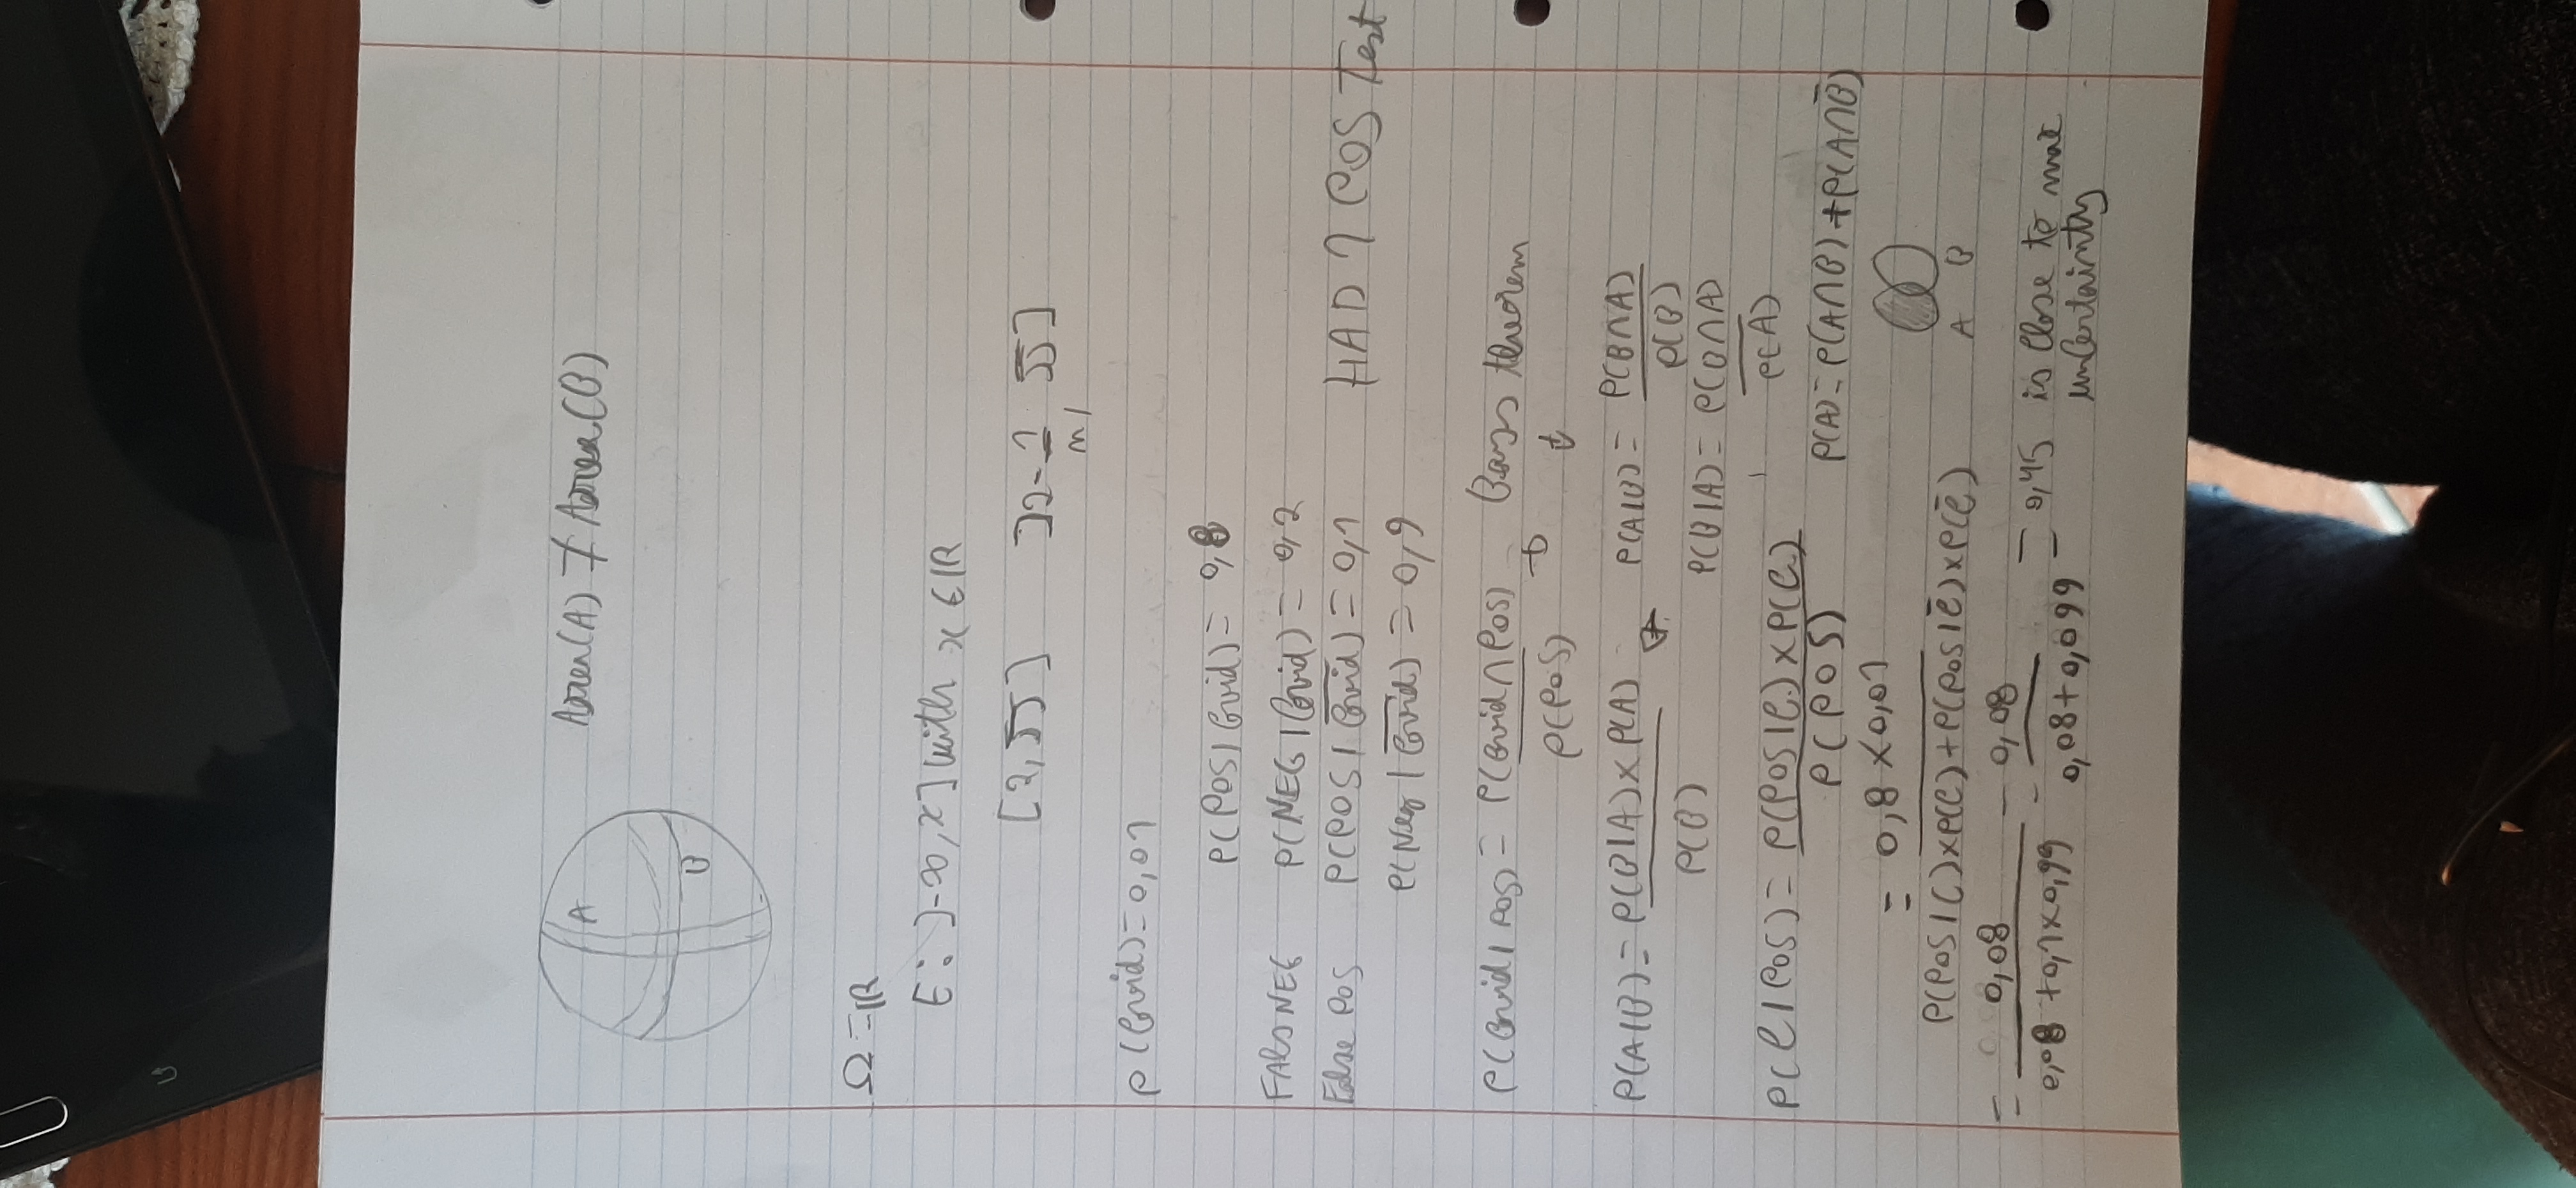 A
Area(A) ≠ Area(B)
B
Ω = ℝ
E: ]-∞, x] with x ∈ ℝ
[2, 55] ]2 - 1/n, 55]
P(Covid) = 0,01
P(POS | Covid) = 0,8
FALS NEG P(NEG | Covid) = 0,2
False POS P(POS | C̅o̅v̅i̅d̅) = 0,1 HAD 1 POS Test
P(Neg | C̅o̅v̅i̅d̅) = 0,9
P(Covid | POS) = P(Covid ∩ POS) / P(POS) → Bays theorem
P(A|B) = P(B|A) × P(A) / P(B) P(A|B) = P(B∩A) / P(B)
P(B|A) = P(B∩A) / P(A)
P(C | POS) = P(POS|C) × P(C) / P(POS)
P(A) = P(A∩B) + P(A∩B̅)
= 0,8 × 0,01 / P(POS|C) × P(C) + P(POS|C̅) × P(C̅)
A B
= 0,08 / 0,08 + 0,1 × 0,99 = 0,08 / 0,08 + 0,099 = 0,45 is close to max
uncertainty